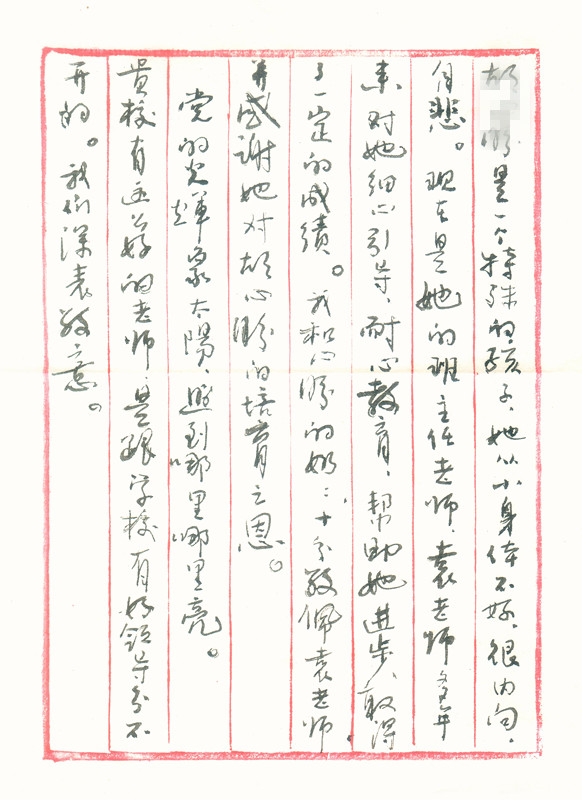 胡盼是一个特殊的孩子,她从小身体不好,很内向,
自悲。现在是她的班主任老师,袁老师多年
来对她细心引导,耐心教育,帮助她进步,取得
了一定的成绩。我和心盼的奶:,十分敬佩袁老师
并感谢她对胡心盼的培育之恩。
党的光辉象太阳,照到哪里哪里亮。
贵校有这么好的老师是跟学校有好领导分不
开的。我们深表敬意。